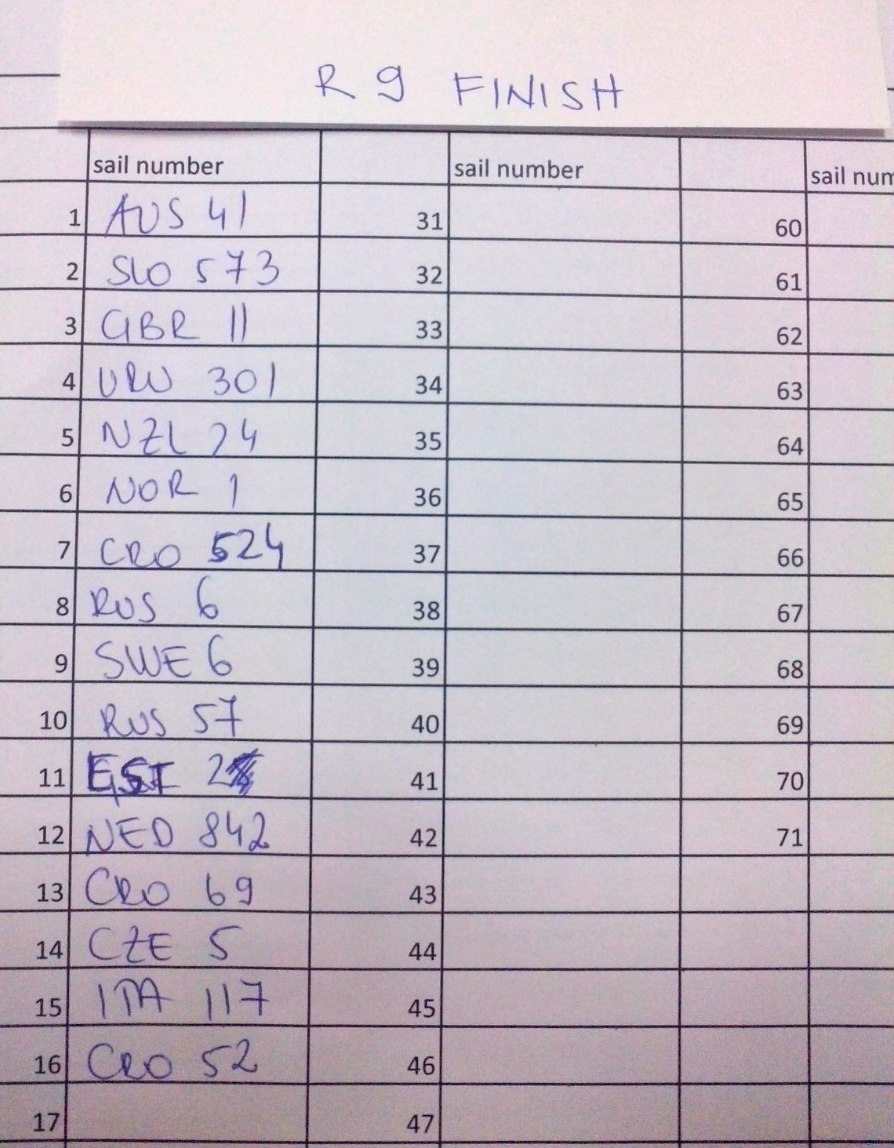 R 9 FINISH
sail number sail number sail num
1 AUS 41 31 60
2 SLO 573 32 61
3 GBR 11 33 62
4 URU 301 34 63
5 NZL 24 35 64
6 NOR 1 36 65
7 CRO 524 37 66
8 RUS 6 38 67
9 SWE 6 39 68
10 RUS 57 40 69
11 EST 2 41 70
12 NED 842 42 71
13 CRO 69 43
14 CZE 5 44
15 ITA 117 45
16 CRO 52 46
17 47